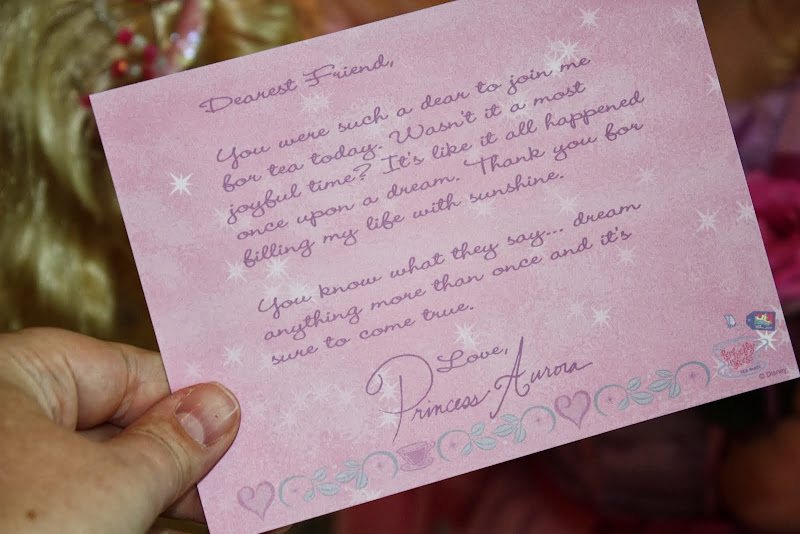 Dearest Friend,
You were such a dear to join me
for tea today. Wasn't it a most
joyful time? It's like it all happened
once upon a dream. Thank you for
filling my life with sunshine.
You know what they say... dream
anything more than once and it's
sure to come true.
Love,
Princess Aurora
© Disney